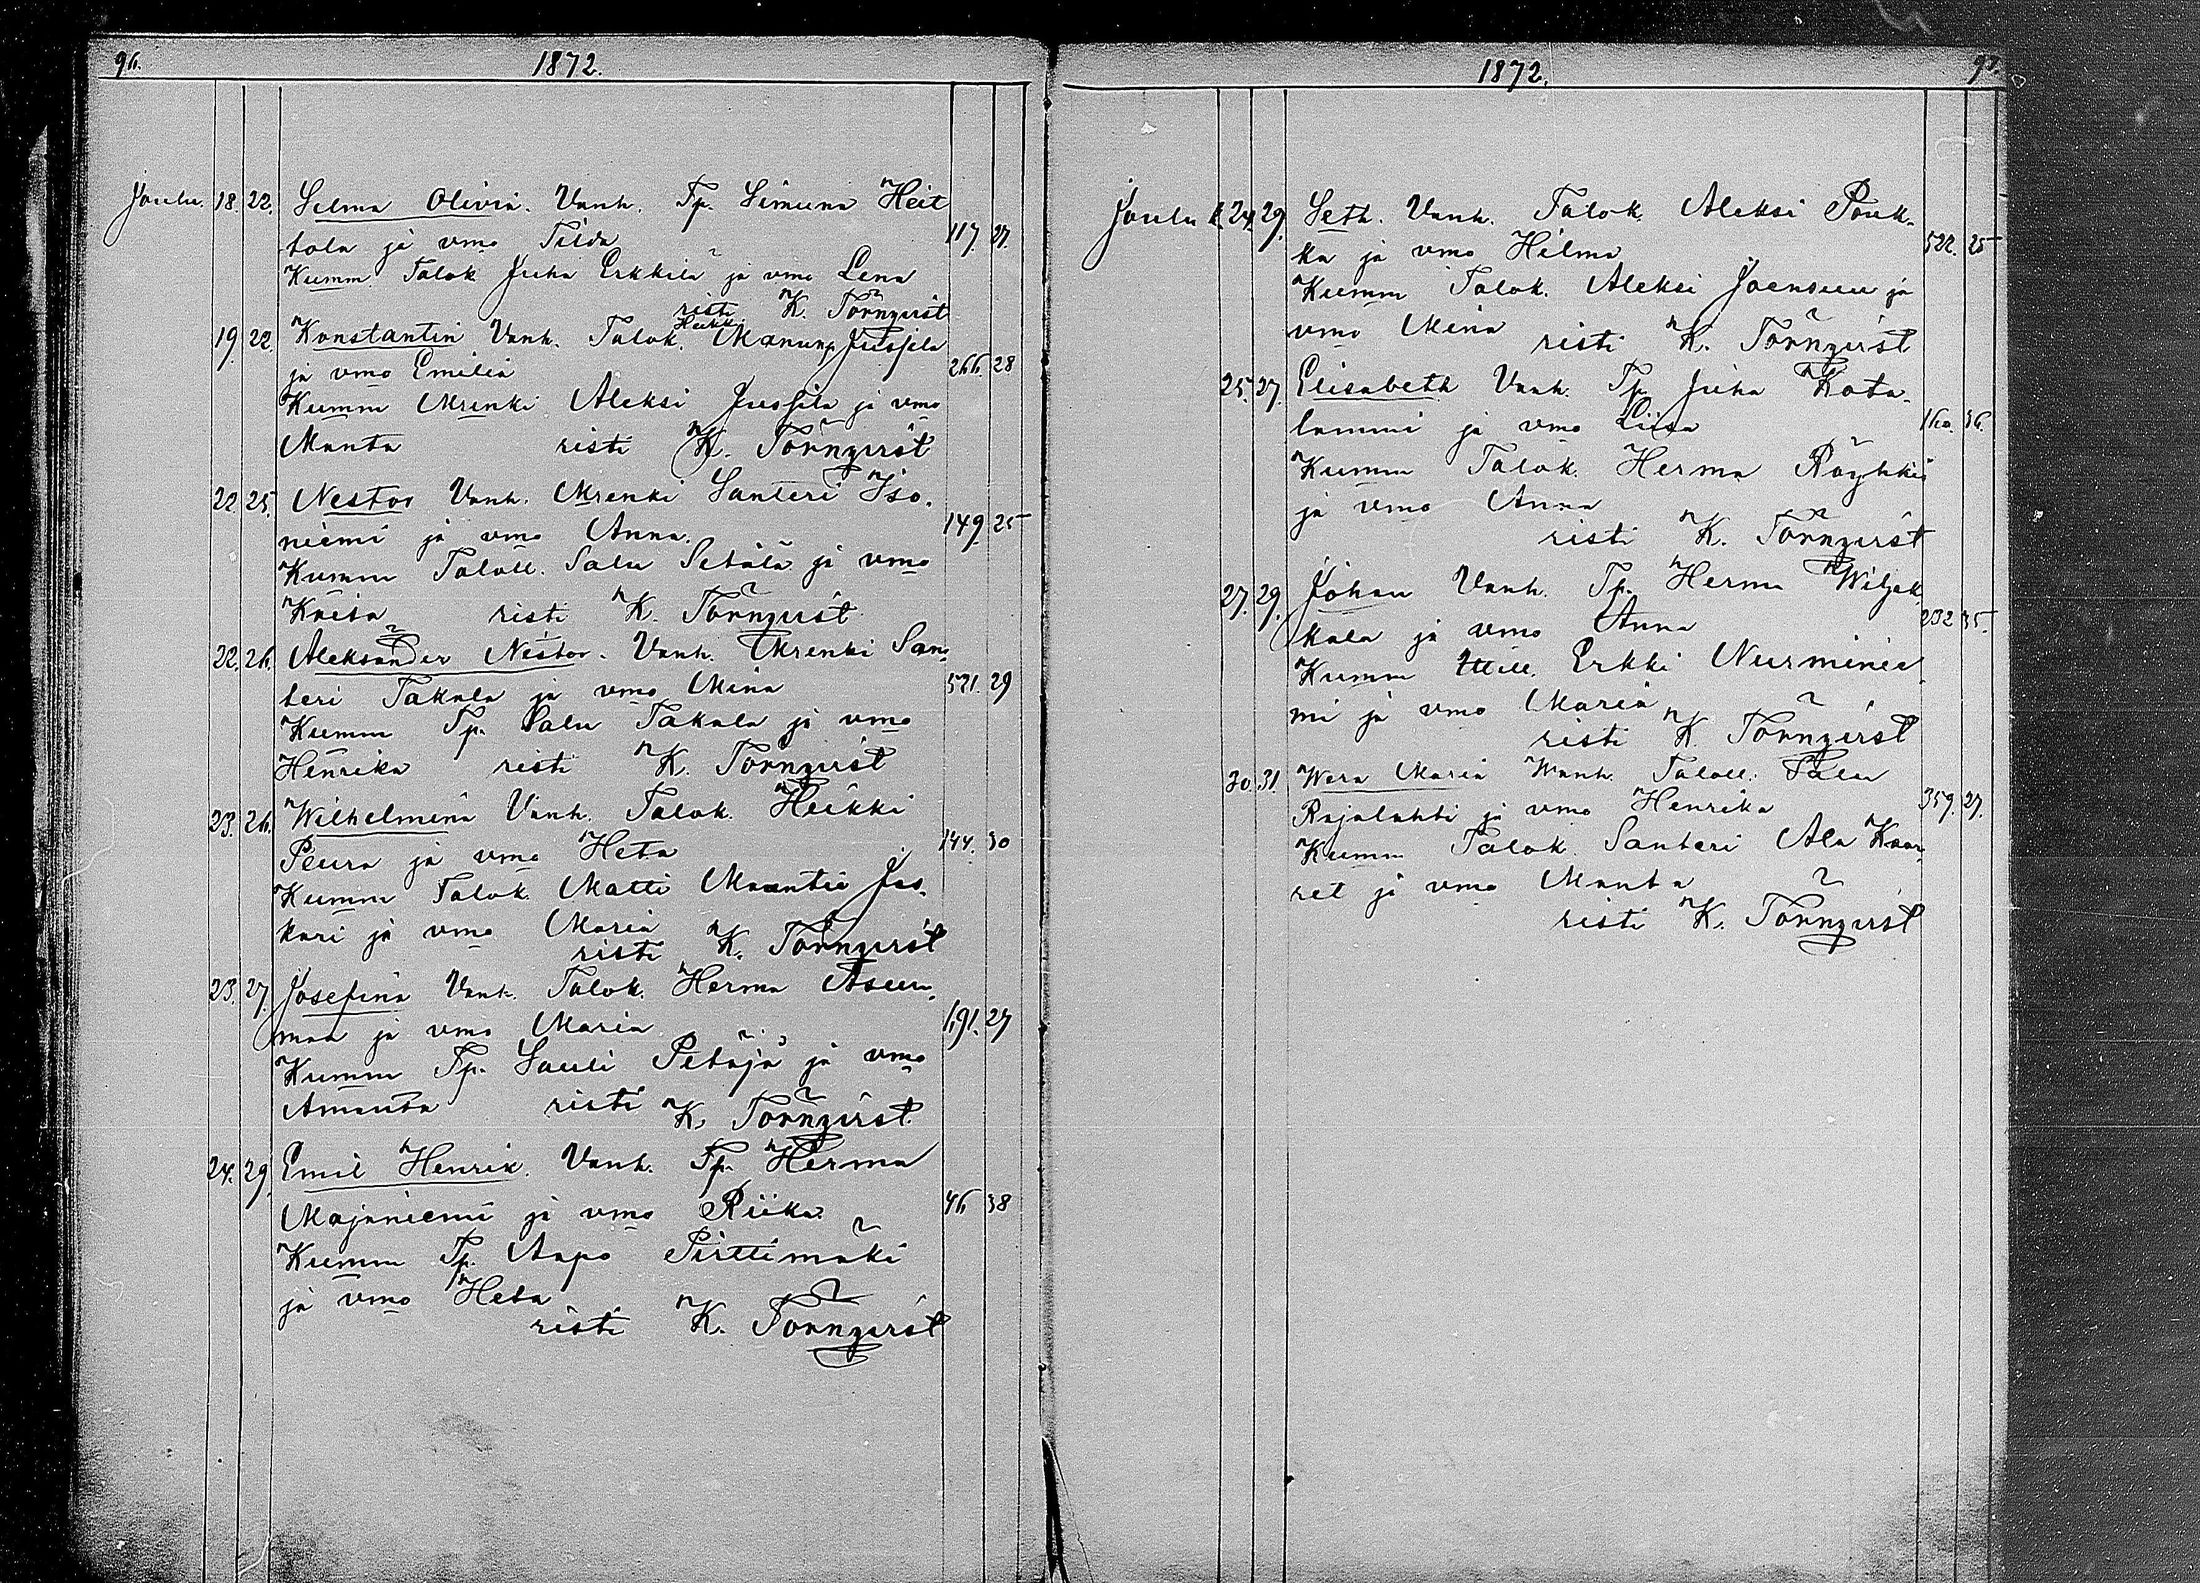 96.
1872.
Joulu. 18. 22. Selma Olivia. Vanh. Tp. Simuna Heit
tola ja vmo Tilda 117. 27.
Kumm. Talok Juha Erkkilä ja vmo Lena
risti K. Törnqvist
19. 22. Konstantin Vanh. Talok. Heikki Manunp. Jussila
ja vmo Emilia 266. 28
Kumm Mrenki Aleksi Jussila ja vmo
Manta risti K. Törnqvist
22 25. Nestor Vanh. Mrenki Santeri Iso-
niemi ja vmo Anna. 149. 25
Kumm Taloll. Salu Setälä ja vmo
Kaisa risti K. Törnqvist
22. 26. Aleksander Nestor. Vanh. Mrenki San-
teri Takala ja vmo Mina 521. 29
Kumm Tp. Salu Takala ja vmo
Henrika risti K. Törnqvist
23. 26. Wilhelmina Vanh. Talok. Heikki
Peura ja vmo Heta 144. 30
Kumm Talok. Matti Mantia Jus-
kari ja vmo Maria
risti K. Törnqvist
23. 27. Josefina Vanh. Talok. Herma Asun-
maa ja vmo Maria 191. 27
Kumm Tp. Sauli Petäjä ja vmo
Amanta risti K. Törnqvist.
24. 29. Emil Henrik. Vanh. Tp. Herma
Majaniemi ja vmo Riika 46 38
Kumm Tp. Aapo Pirttimäki
ja vmo Heta
risti K. Törnqvist
1872.
97.
Joulu k. 24. 29. Seth. Vanh. Talok. Aleksi Pouk-
ka ja vmo Hilma 522. 25
Kumm Talok. Aleksi Joensuu ja
vmo Mina risti K. Törnqvist
25. 27. Elisabeth Vanh. Tp. Juha Kota-
lammi ja vmo Liisa 160. 36.
Kumm Talok. Herma Röyhkiö
ja vmo Anna
risti K. Törnqvist
27. 29. Johan Vanh. Tp. Herma Wiljak-
kala ja vmo Anna 232 35.
Kumm Erkki Nurminie-
mi ja vmo Maria
risti K. Törnqvist
30. 31. Wera Maria Wanh. Taloll. Salu
Rajalahti ja vmo Henrika 359. 27.
Kumm Talok. Santeri Ala Kaar-
ret ja vmo Manta
risti K. Törnqvist